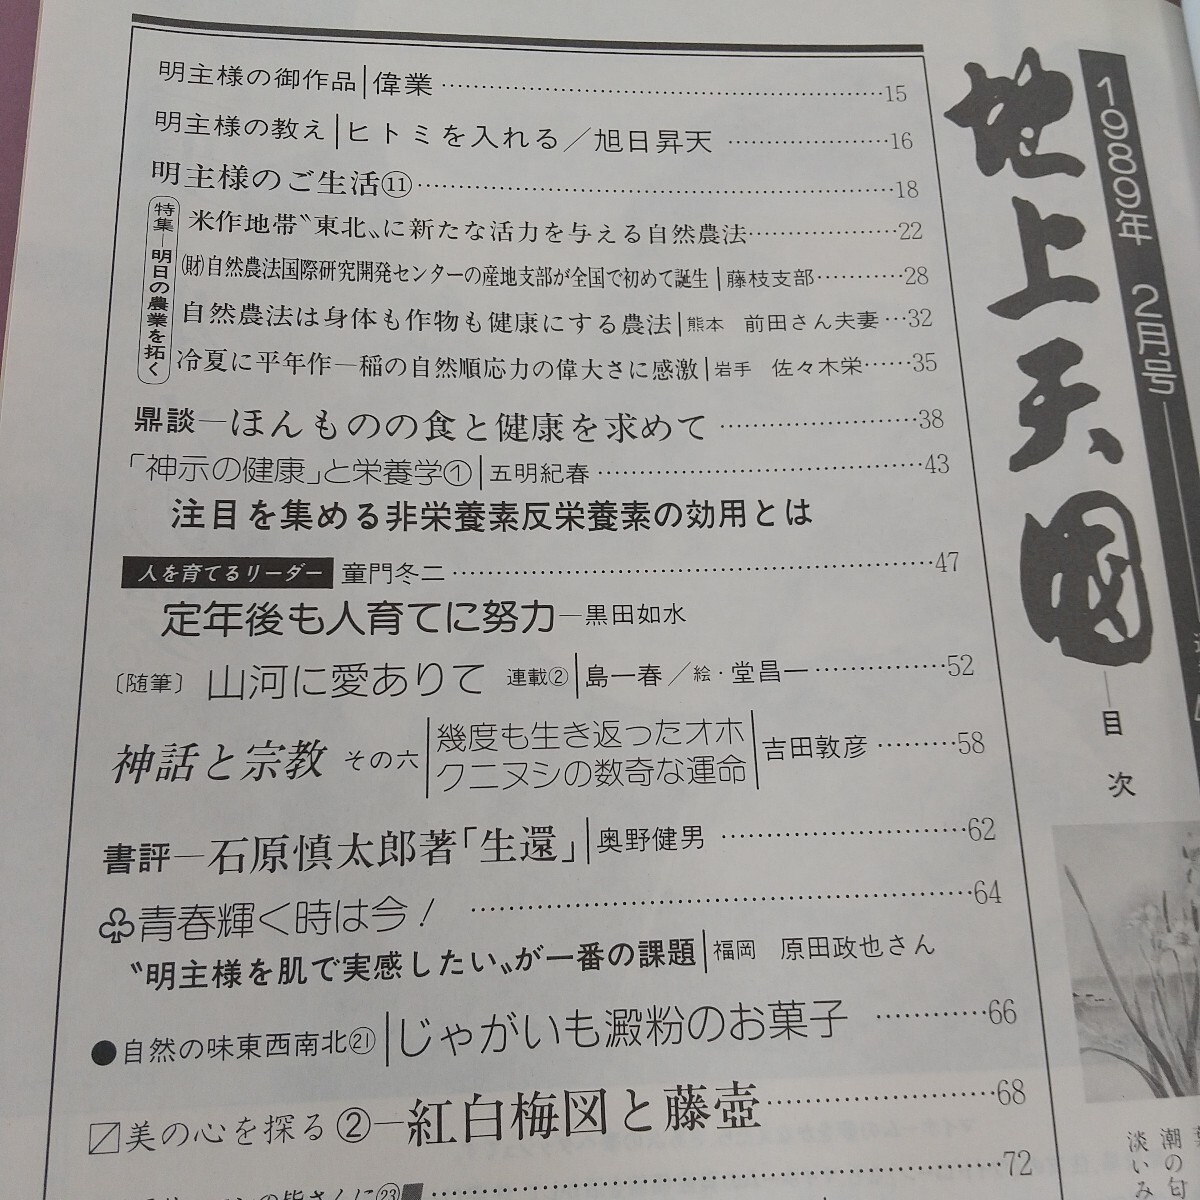 1989年 2月号
地上天国
目次
明主様の御作品|偉業 15
明主様の教え|ヒトミを入れる/旭日昇天 16
明主様のご生活⑪ 18
特集―明日の農業を拓く
米作地帯〝東北〟に新たな活力を与える自然農法 22
㈶自然農法国際研究開発センターの産地支部が全国で初めて誕生|藤枝支部 28
自然農法は身体も作物も健康にする農法|熊本 前田さん夫妻 32
冷夏に平年作―稲の自然順応力の偉大さに感激|岩手 佐々木栄 35
鼎談―ほんものの食と健康を求めて 38
「神示の健康」と栄養学①|五明紀春 43
注目を集める非栄養素反栄養素の効用とは
人を育てるリーダー 童門冬二 47
定年後も人育てに努力―黒田如水
〔随筆〕 山河に愛ありて 連載②|島一春/絵・堂昌一 52
神話と宗教 その六|幾度も生き返ったオホ
クニヌシの数奇な運命|吉田敦彦 58
書評―石原慎太郎著「生還」|奥野健男 62
♧青春輝く時は今! 64
〝明主様を肌で実感したい〟が一番の課題|福岡 原田政也さん
●自然の味東西南北㉑|じゃがいも澱粉のお菓子 66
美の心を探る②―紅白梅図と藤壺 68
の皆さんに㉓ 72
潮の匂
淡いみ